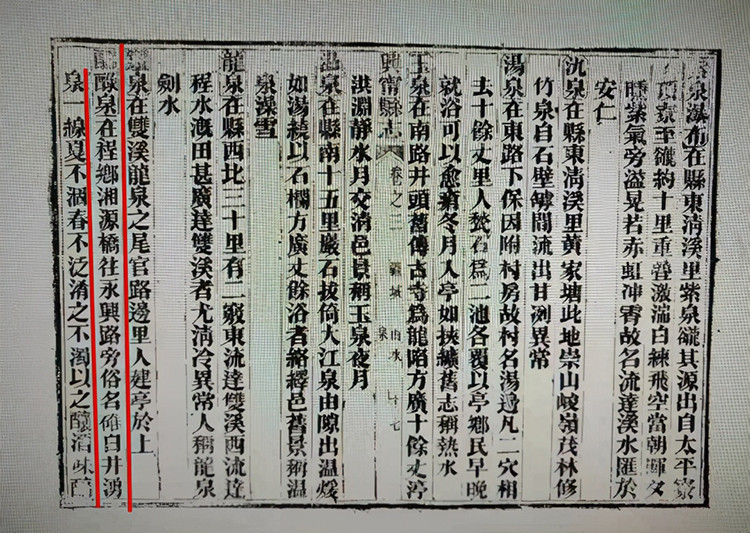 泉瀑布在縣東清溪里紫泉巖其源出自太平寨
寨至巖約十里重巒激湍白練飛空當朝暉夕
曛紫氣旁溢晃若赤虹冲霄故名流達溪水匯於
安仁
氿泉在縣東淸溪里黃家塘此地崇山峻嶺茂林修
竹泉自石壁罅間流出甘洌異常
湯泉在東路下保因附村房故村名湯邊凡二穴相
去十餘丈里人甃石爲二池各覆以亭鄉民早晚
就浴可以愈瘡冬月入亭如挾纊舊志稱熱水
玉泉在南路井頭舊傳古寺爲龍陷方廣十餘丈渟
興甯縣志 卷之二 疆域 山水 泉 七
洪淵靜水月交淸邑景稱玉泉夜月
溫泉在縣南十五里巖石拔倚大江泉由隙出温煖
如湯繞以石欄方廣丈餘浴者絡繹邑舊景稱温
泉漾雪
龍泉在縣西北三十里有二竅東流達雙溪西流達
程水漑田甚廣達雙溪者尤淸冷異常人稱龍泉
劍水
泉在雙溪龍泉之尾官路邊里人建亭於上
醁泉在程鄉湘源橋往永興路旁俗名碓臼井湧
泉一線夏不涸春不泛淆之不濁以之釀酒味